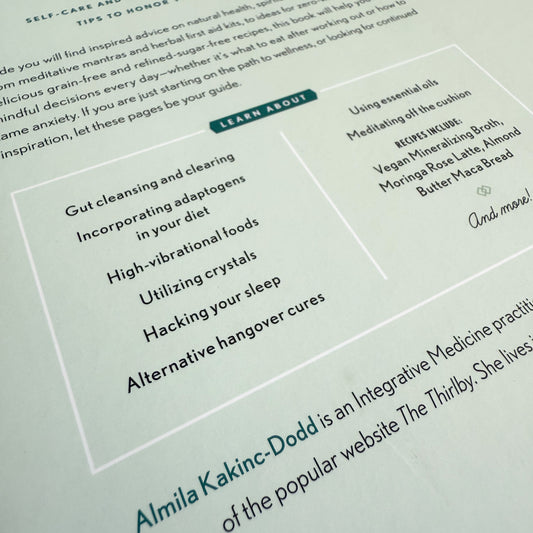 SELF-CARE AND
TIPS TO HONOR
you will find inspired advice on natural health,
meditative mantras and herbal first aid kits, to ideas for
grain-free and refined-sugar-free recipes, this book will help
mindful decisions every day—whether it's what to eat after working out or how to
anxiety. If you are just starting on the path to wellness, or looking for continued
inspiration, let these pages be your guide.
LEARN ABOUT
Gut cleansing and clearing
Incorporating adaptogens
in your diet
High-vibrational foods
Utilizing crystals
Hacking your sleep
Alternative hangover cures
Using essential oils
Meditating off the cushion
RECIPES INCLUDE:
Vegan Mineralizing Broth,
Moringa Rose Latte, Almond
Butter Maca Bread
And more!
Almila Kakinc-Dodd is an Integrative Medicine
of the popular website The Thirlby. She lives